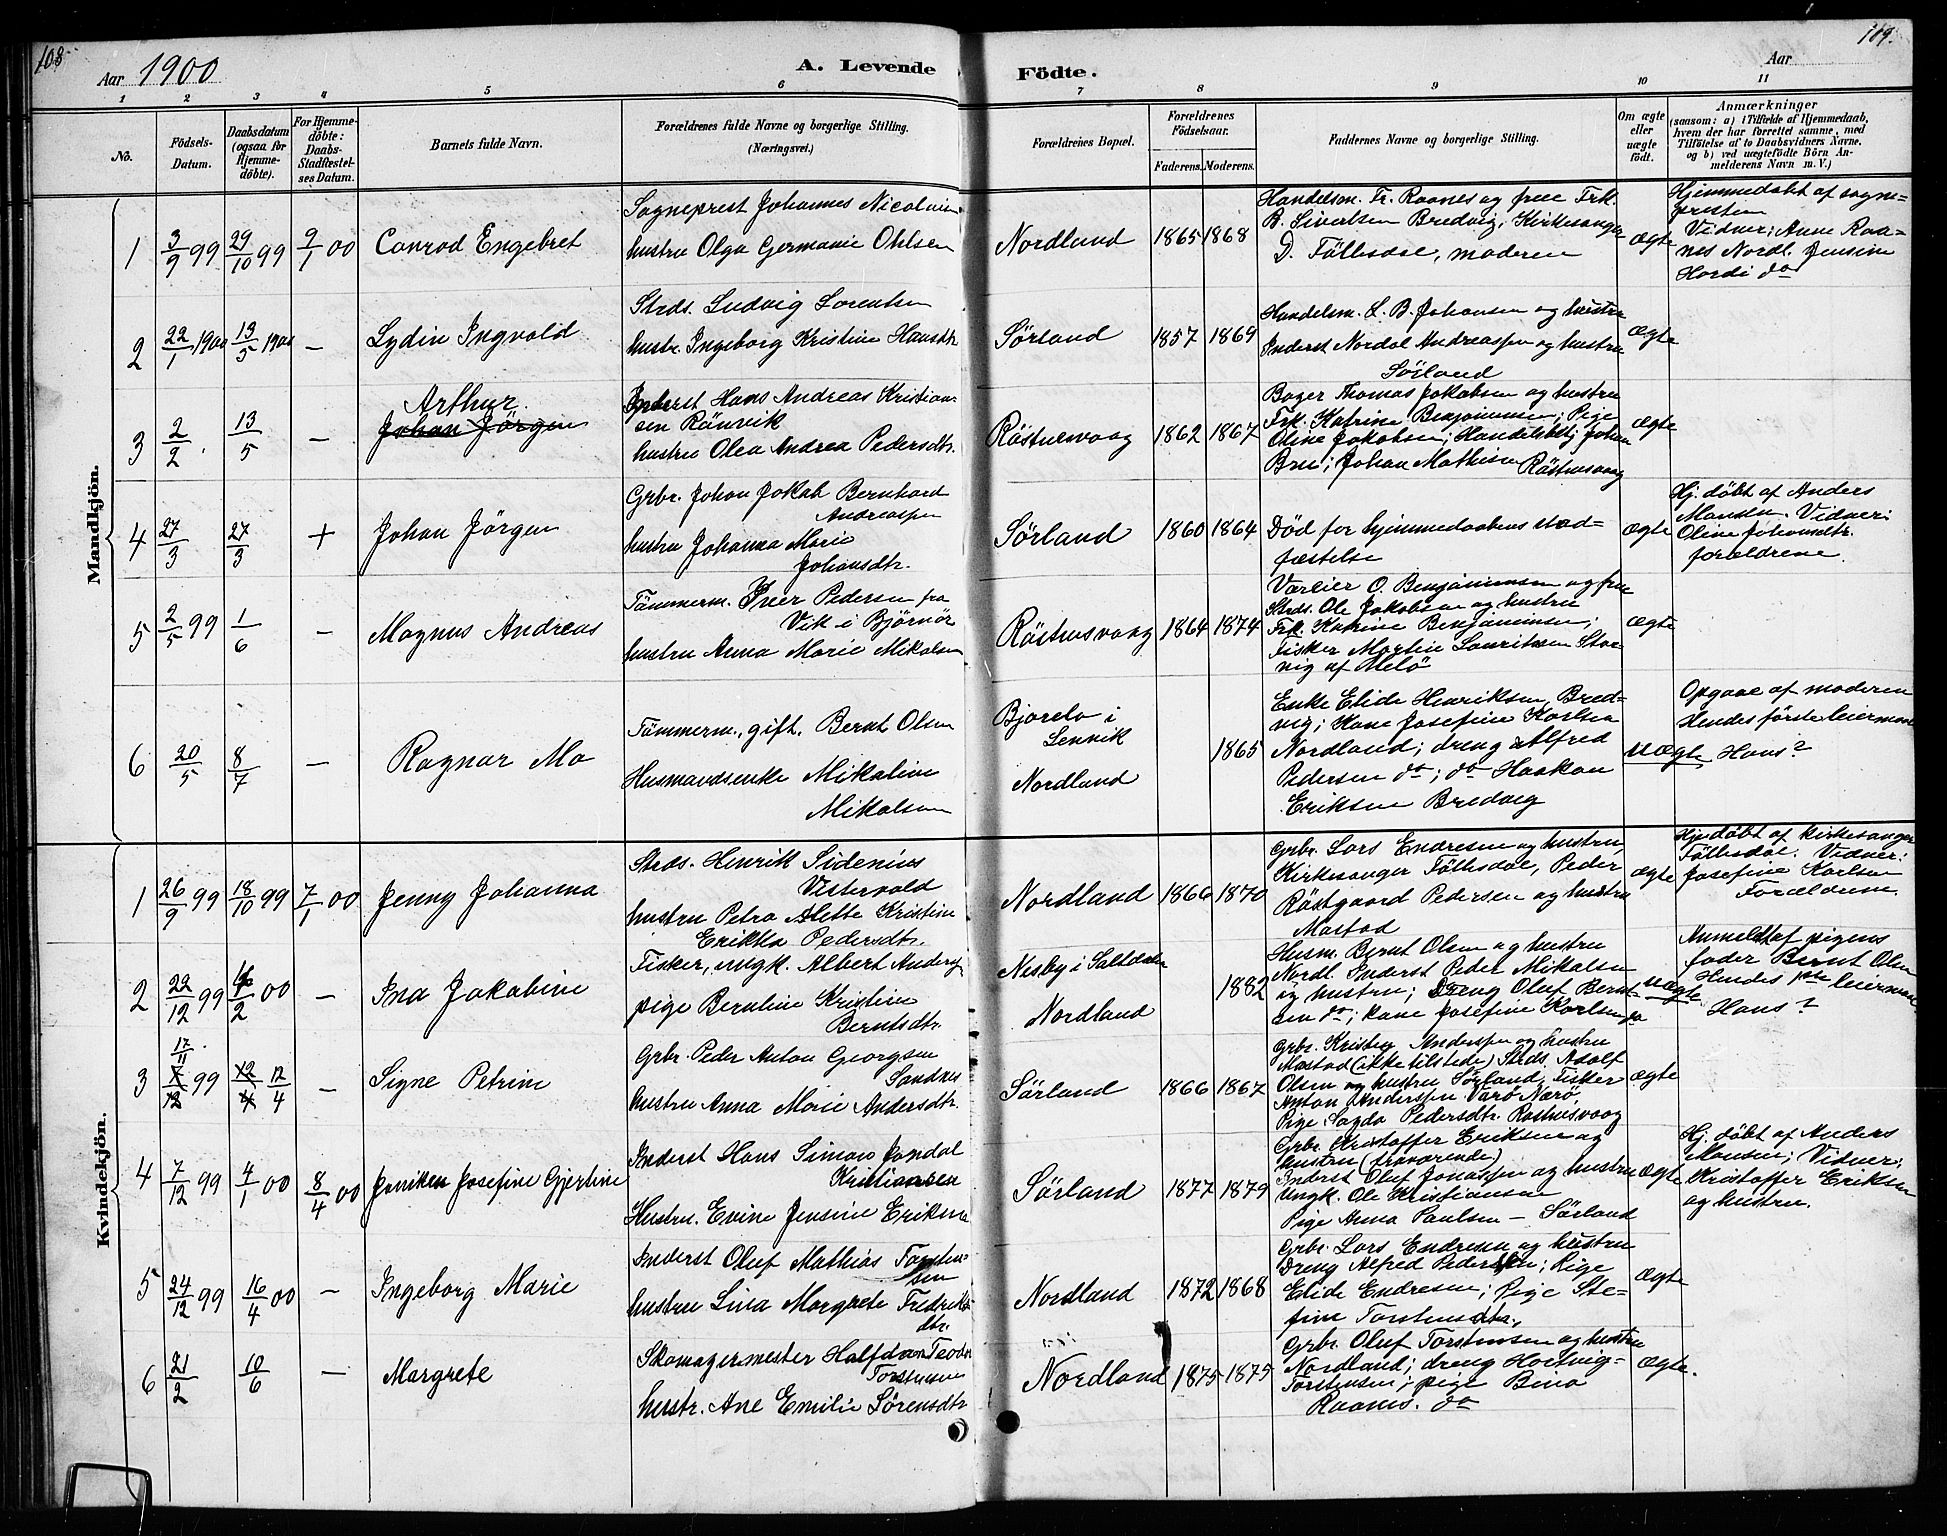 108
109.
Aar 1900
A. Levende
Födte.
Aar
1 2 3 4 5 6 7 8 9 10 11
No.
Födsels-Datum.
Daabsdatum (ogsaa for Hjemme-döbte).
For Hjemme-döbte: Daabs-Stadfæstel-ses Datum.
Barnets fulde Navn.
Forældrenes fulde Navne og borgerlige Stilling. (Næringsvei.)
Forældrenes Bopæl.
Forældrenes Födselsaar.
Faderens. Moderens.
Faddernes Navne og borgerlige Stilling.
Om ægte eller uægte födt.
Anmærkninger
(saasom: a) i Tilfælde af Hjemmedaab,
hvem der har forrettet samme, med
Tilföielse af to Daabsvidners Navne,
og b) ved uægtefödte Börn An-
melderens Navn m. V.)
Mandkjön.
1 3/9 99 29/10 99 9/1 00 Conrod Engebret
Sogneprest Johannes Nicolai
hustru Olga Germanie Ohlsen
Nordland 1865 1868
Handelsm. Fr. Raanes og frue Frk.
B. Sivertsen Bredvig, Kirkesanger
D. Föllesdal, moderen
ægte
Hjemmedøbt af sogne-
presten
Vidner: Anne Raa-
nes Nordl. Jensine
Hordi do
2 22/1 1900 13/5 1900 — Lydin Ingvold
Strds. Ludvig Lorentsen
hustr. Ingeborg Kristine Hansdtr
Sørland 1857 1869
Handelsm. L. B. Johansen og hustru
Inderst Nordal Andreassen og hustru
Sørland
ægte
3 2/2 13/5 — Arthur
Johan Jörgen
Inderst Hans Andreas Kristian-
sen Rånvik
hustru Olea Andrea Pedersdtr.
Röstnesvaag 1862 1867
Bager Thomas Jakobsen og hustru
Frk. Katrine Benjaminsen; Pige
Oline Jakobsen; Handelsbetj. Johan
Brun; Johan Mathisen Röstnesvaag
ægte
4 27/3 27/3 + Johan Jörgen
Grbr. Johan Jokab Bernhard
Andreassen
hustru Johanna Marie
Johansdtr.
Sørland 1860 1864
Död for hjemmedaabens stad-
fæstelse
ægte
Hj. döbt af Anders
Monsen. Vidner:
Oline Johansdtr.
forældrene
5 2/5 99 1/6 — Magnus Andreas
Tömmerm. Iver Pedersen fra
Vik i Björnör
hustru Anna Marie Mikalsen
Röstnesvaag 1864 1874
Værleier O. Benjaminsen og frue
Strds. Ole Jakobsen og hustru
Frk. Katrine Benjaminsen;
Fisker Martin Lauritsen Stor-
vig af Melö
ægte
6 20/5 8/7 — Ragnar Mo
Tömmerm., gift. Bernt Olsen
Husmandsenke Mikaline
Mikalsen
Bjorelv i
Lenvik
Nordland
1865
Enke Elide Henriksen Bred-
vig; Kone Josefine Karlsen
Nordland; dreng Alfred
Pedersen do; do Haakon
Eriksen Bredvig
uægte
Opgave af moderen
Hendes første leiermaal
Hans?
Kvindekjön.
1 26/9 99 18/10 99 7/1 00 Jenny Johanna
Strds. Henrik Sidenius
Vestervold
hustru Petra Alette Kristine
Erikka Pedersdtr.
Nordland 1866 1870
Grbr. Lars Endresen og hustru
Kirkesanger Föllesdal, Peder
Röstgaard Pedersen og hustru
Mastad
ægte
Hj. döbt af kirkesanger
Föllesdal. Vidner:
Josefine Karlsen
Forældrene.
2 22/12 99 /2 00 — Ina Jakobine
Fisker, ungk. Albert Anders
pige Bernline Kristine
Berntsdtr.
Nesby i Saltdalen
Nordland
1882
Husm. Bernt Olsen og hustru
Nordl. Inderst Peder Mikalsen
og hustru; Dreng Oluf Bernt-
sen do; kone Josefine Karlsen do
uægte
Anmeldt af pigens
fader Bernt Olsen
Hendes 1ste leiermaal
Hans?
3 17/11 7/12 99 12/4 12/4 — Signe Petrine
Grbr. Peder Anton Georgsen
Sandnes
hustru Anna Marie Andersdtr.
Sörland 1866 1867
Grbr. Kristen Anderssen og hustru
Mastad (ikke tilstede) Strds. Adolf
Olsen og hustru Sörland, Fisker
Anton Anderssen Varö Nærö,
Pige Pedersdtr. Röstnesvaag
ægte
4 7/12 99 4/1 00 8/4 00 Jenriken Josefine Gjertine
Inderst Hans Simon Jondal
Kristiansen
Hustru. Evine Jensine Eriksen
Sörland 1877 1879
Grbr. Kristoffer Eriksen og
hustru (fraværende)
Inderst Oluf Jonassen og hustru
Ungk. Ole Kristiansen
Pige Anna Paulsen — Sörland
ægte
Hj. döbt af Anders
Monsen; Vidner:
Kristoffer Eriksen
og hustru.
5 24/12 99 16/4 00 — Ingeborg Marie
Inderst Oluf Mathias Torsten-
sen
hustru Lina Margrete Fredriks-
dtr.
Nordland 1872 1868
Grbr. Lars Endresen og hustru
Dreng Alfred Pedersen; Pige
Elide Endresen; Pige Ste-
fine Torstensdtr.
ægte
6 21/2 10/6 — Margrete
Skomagermester Halfdan Teodor
Torstensen
hustr. Ane Emilie Sörensdtr
Nordland 1875 1875
Grbr. Oluf Torstensen og hustru
Nordland; dreng Hartvig
Torstensen; pige Bina
Raanes. do
ægte.